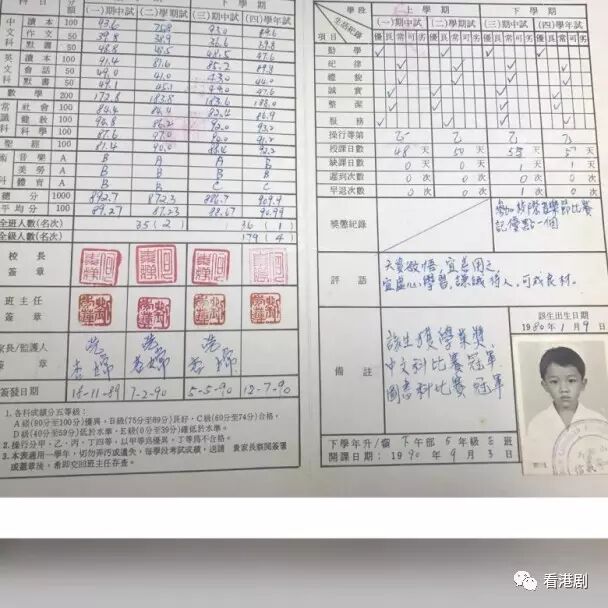 科目
分額
上學期
下學期
(一)期中試 (二)學期試 (三)期中試 (四)學年試
中文科 讀本 100 93.6 93.0 89.6
作文 50 39.8 38.9 36.6 39.8
默書 50 48.8 48.5 48.5 47.6
英文科 讀本 100 91.4 87.6 85.2
會話 50 49.0 41.0 43.0
默書 50 49.1 45.1 49.0 47.6
數學 200 172.8 183.8 183.6 188.0
常識科 社會 100 84.4 84.4 82.4 86.9
健教 100 96.8 86.2 92.0 93.2
科學 100 87.6 97.0 90.0 91.2
聖經 100 81.4 90.0 88.4 92.2
音樂 A B A A A
美勞 A B B B B
體育 A B B C C
總分 1000 892.7 872.3 886.7 909.9
平均分 100 89.27 87.23 88.67 90.99
全班人數(名次) 35(2) 36(1)
全級人數(名次) 179(4)
校長簽章
班主任簽章
家長/監護人簽章
簽發日期 18-11-89 7-2-90 5-5-90 12-7-90
1.各科成績分五等級:
A級(90分至100分)優異,B級(75分至89分)良好,C級(60分至74分)合格,
D級(40分至59分)低於水準,E級(0分至39分)離低於水準。
2.操行分甲、乙、丙、丁四等,以甲等爲優異,丁等爲不合格。
3.本表適用一學年,切勿弄污或遺失,每學段考試成績,送請 貴家長察閱簽署
或蓋章後,希卽交回班主任存查。
學段 上學期 下學期
生活紀錄
(一)期中試 (二)學期試 (三)期中試 (四)學年試
項目 優良常可劣 優良常可劣 優良常可劣 優良常可劣
勤學
紀律
禮貌
誠實
整潔
服務
操行等第 乙 乙 乙
授課日數 48天 50天 55天 57天
缺課日數 0天 0天 1天 1天
遲到次數 0次 0次 0次 0次
早退次數 0次 0次 1次 0次
獎懲紀錄
參加校際音樂節比賽
記優點一個
評語
天資敏悟,宜善用之,
宜虛心學習,謙誠待人,可成良材。
備註
該生獲學業獎,
中文科比賽冠軍
圖書科比賽冠軍
該生出生日期
1980年1月9日
下學年升/留 下午部 5年級 班
開課日期:1990年9月3日
看港剧